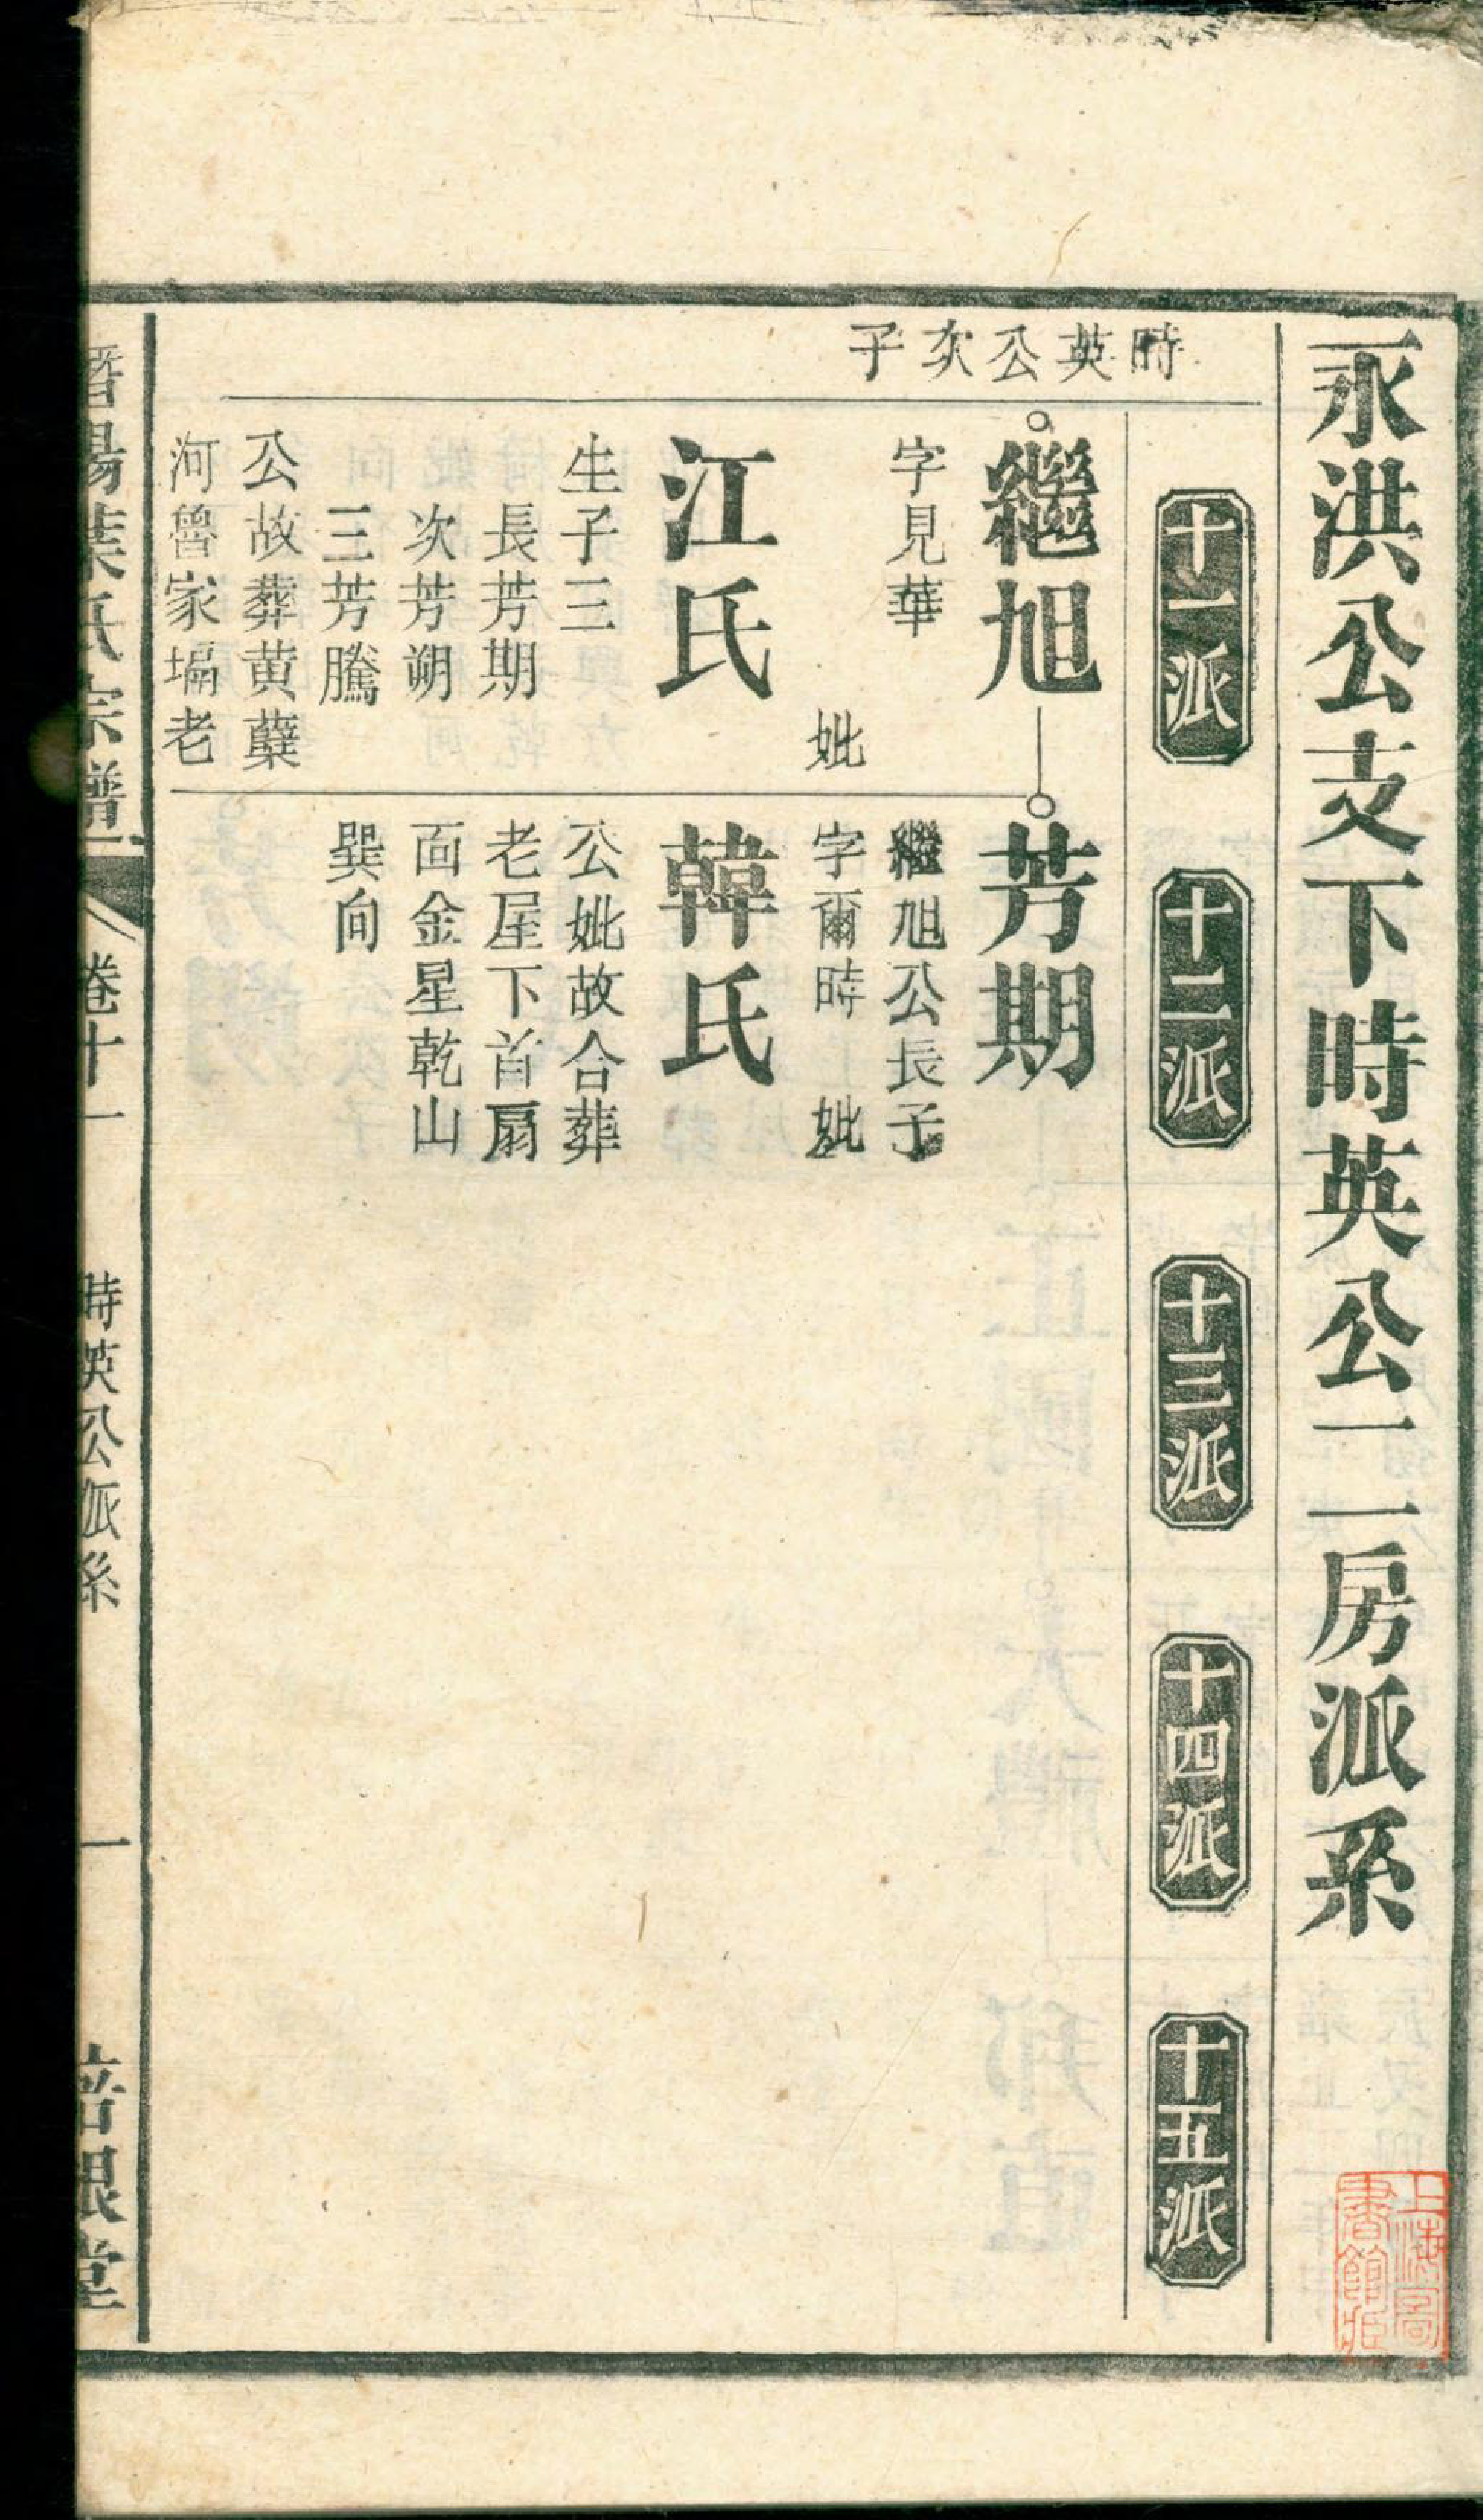 永洪公支下時英公二房派系
十一派
十二派
十三派
十四派
十五派
時英公次子
繼旭
字見華
妣
江氏
生子三
長芳期
次芳朔
三芳騰
公故葬黄蘗
河魯家塥老
芳期
繼旭公長子
字爾時 妣
韓氏
公妣故合葬
老屋下首扇
面金星乾山
巽向
葉氏宗譜
卷十一
時英公派系
一
堂
上海圖
書館藏